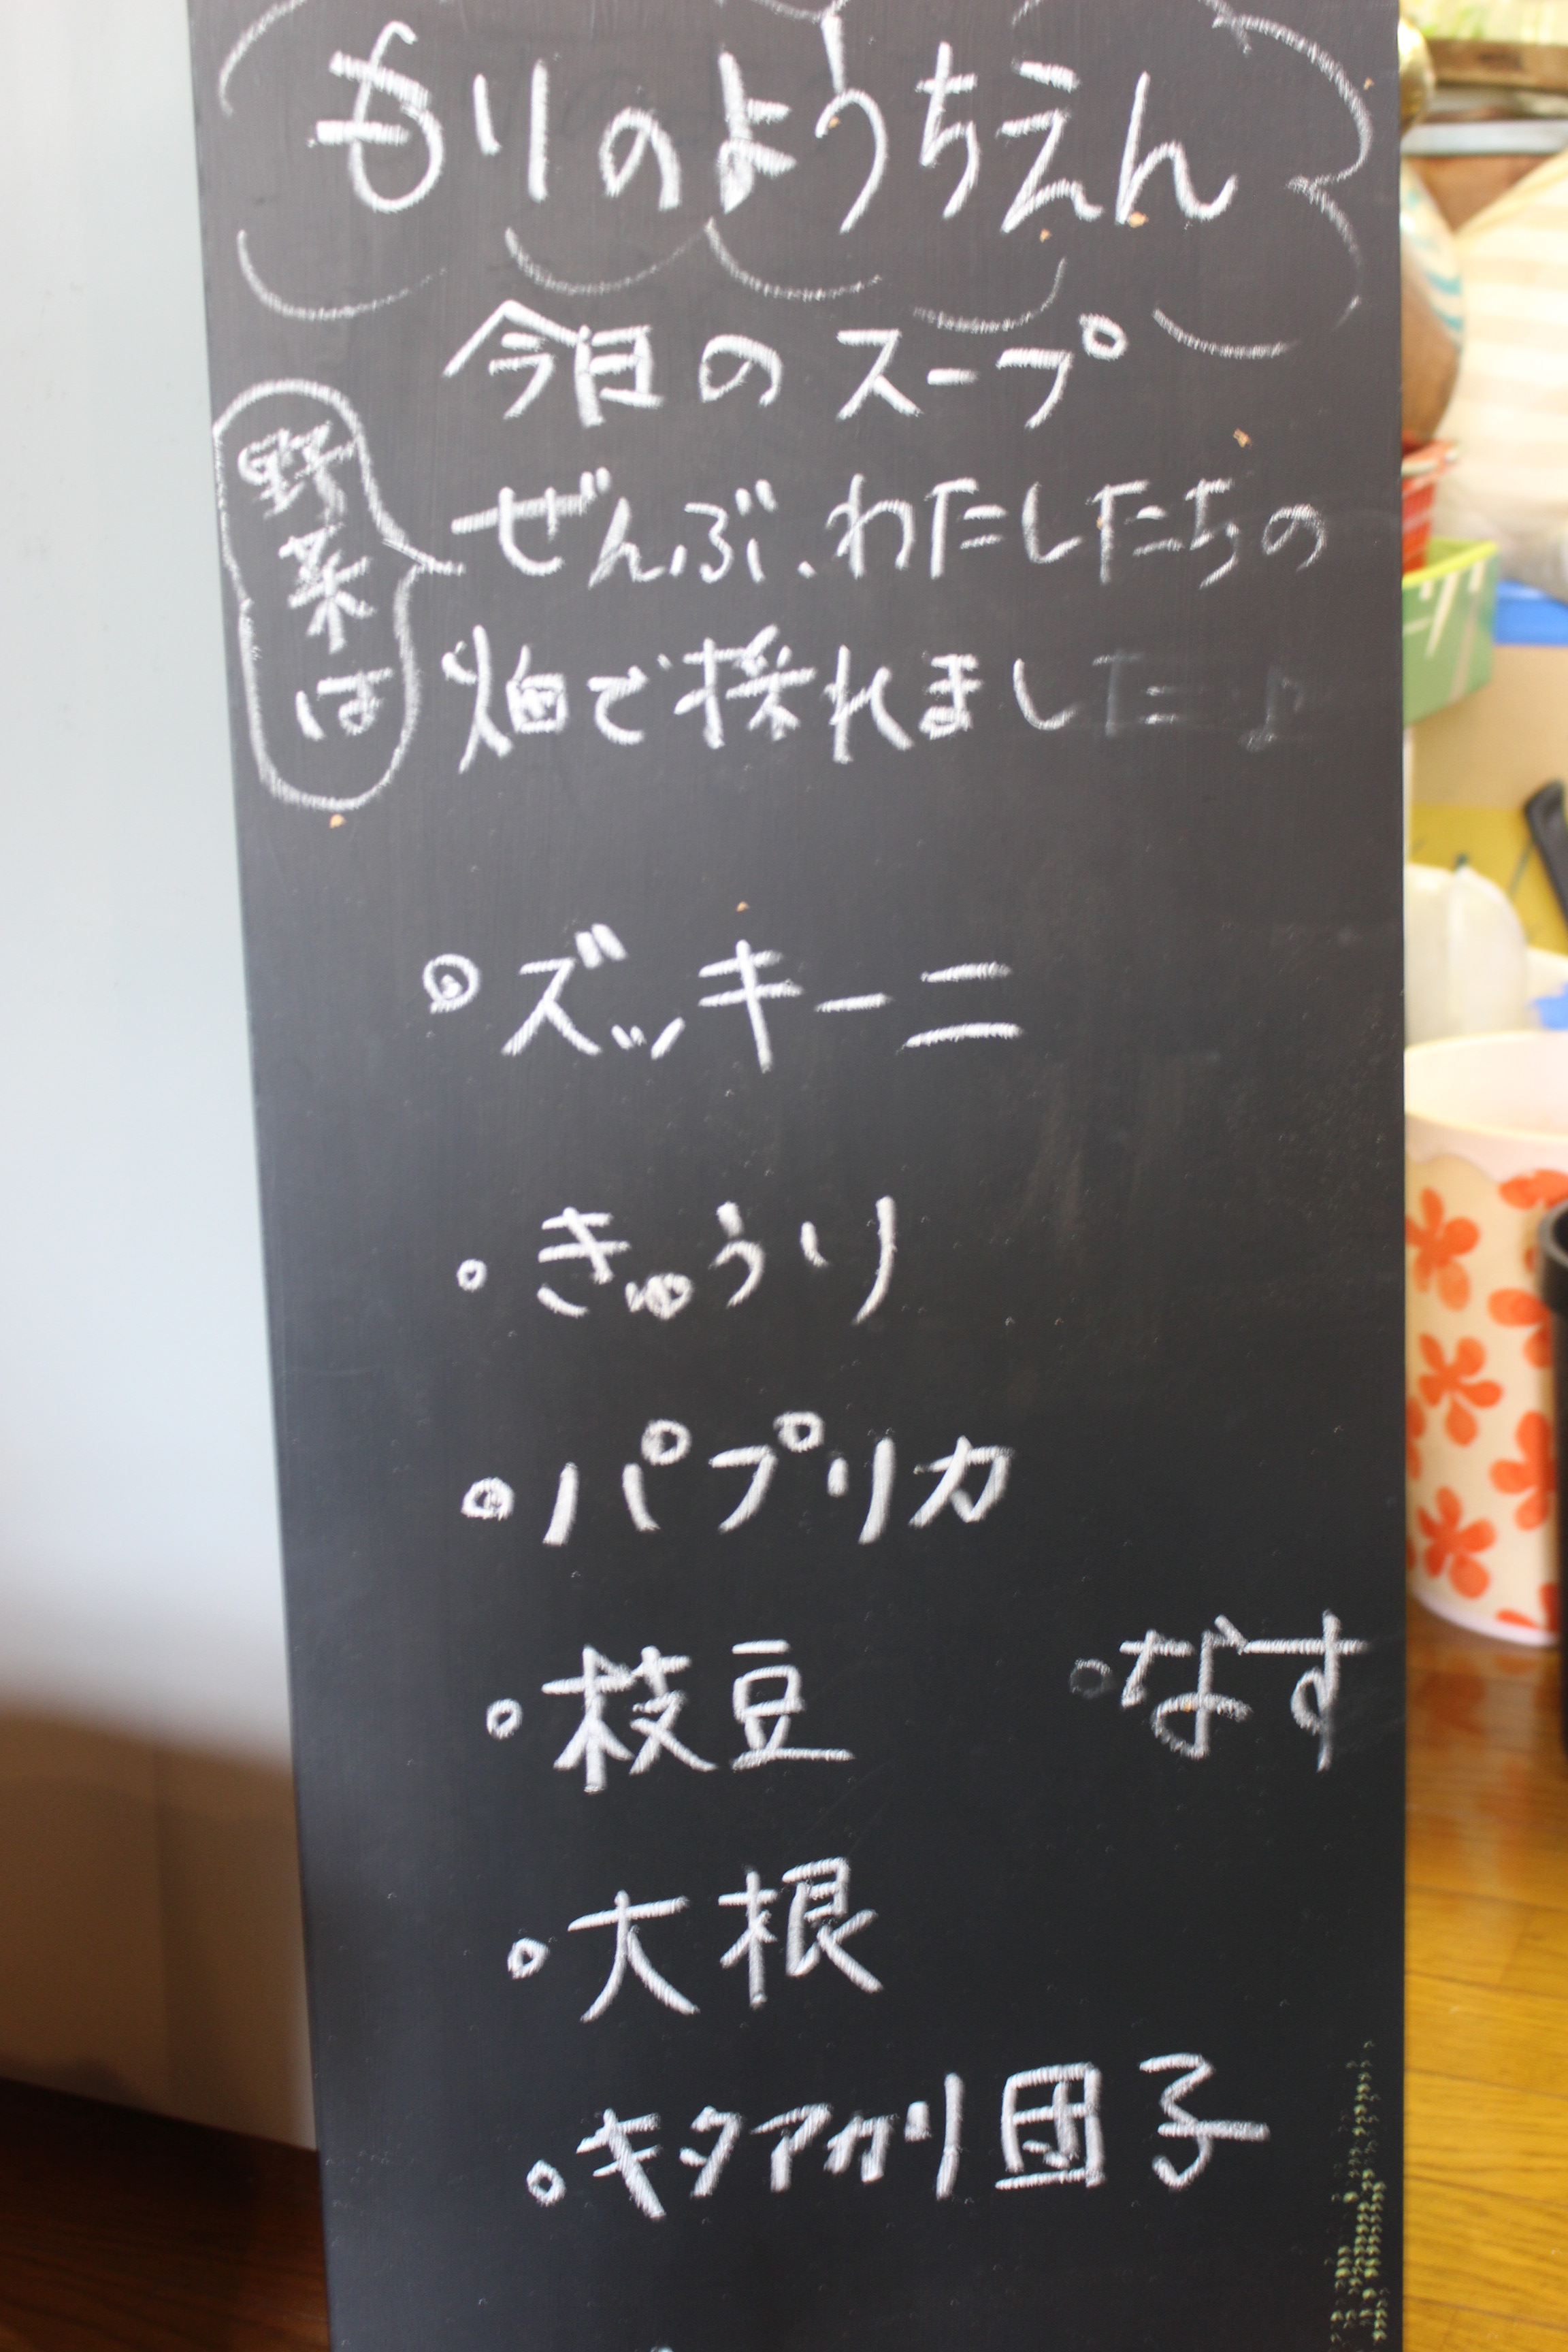 もりのようちえん
今日のスープ
野菜は
ぜんぶ、わたしたちの
畑で採れました♪
・ズッキーニ
・きゅうり
・パプリカ
・枝豆
・なす
・大根
・キタアカリ団子